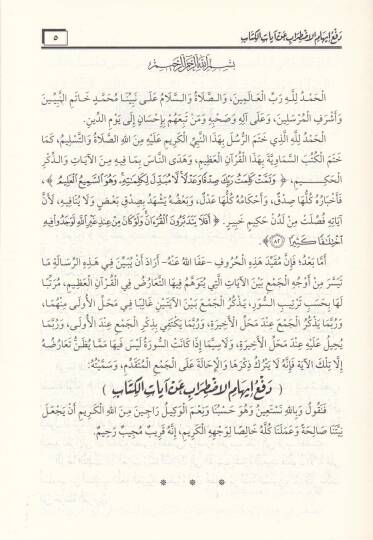 دفع إيهام الاضطراب عن آيات الكتاب
٥
بسم الله الرحمن الرحيم
الْحَمْدُ لِلَّهِ رَبِّ الْعَالَمِينَ، وَالصَّلَاةُ وَالسَّلَامُ عَلَى نَبِيِّنَا مُحَمَّدٍ خَاتَمِ النَّبِيِّينَ
وَأَشْرَفِ الْمُرْسَلِينَ، وَعَلَى آلِهِ وَصَحْبِهِ وَمَنْ تَبِعَهُمْ بِإِحْسَانٍ إِلَى يَوْمِ الدِّينِ.
الْحَمْدُ لِلَّهِ الَّذِي خَتَمَ الرُّسُلَ بِهَذَا النَّبِيِّ الْكَرِيمِ عَلَيْهِ مِنَ اللَّهِ الصَّلَاةُ وَالتَّسْلِيمُ، كَمَا
خَتَمَ الْكُتُبَ السَّمَاوِيَّةَ بِهَذَا الْقُرْآنِ الْعَظِيمِ، وَهَدَى النَّاسَ بِمَا فِيهِ مِنَ الْآيَاتِ وَالذِّكْرِ
الْحَكِيمِ، ﴿وَتَمَّتْ كَلِمَتُ رَبِّكَ صِدْقًا وَعَدْلًا لَّا مُبَدِّلَ لِكَلِمَاتِهِ وَهُوَ السَّمِيعُ الْعَلِيمُ﴾،
فَأَخْبَارُهُ كُلُّهَا صِدْقٌ، وَأَحْكَامُهُ كُلُّهَا عَدْلٌ، وَبَعْضُهُ يَشْهَدُ بِصِدْقِ بَعْضٍ وَلَا يُنَافِيهِ، لِأَنَّ
آيَاتِهِ فُصِّلَتْ مِنْ لَدُنْ حَكِيمٍ خَبِيرٍ. ﴿أَفَلَا يَتَدَبَّرُونَ الْقُرْآنَ وَلَوْ كَانَ مِنْ عِندِ غَيْرِ اللَّهِ لَوَجَدُوا فِيهِ
اخْتِلَافًا كَثِيرًا (٨٢)﴾.
أَمَّا بَعْدُ؛ فَإِنَّ مُقَيِّدَ هَذِهِ الْحُرُوفِ -عَفَا اللَّهُ عَنْهُ- أَرَادَ أَنْ يُبَيِّنَ فِي هَذِهِ الرِّسَالَةِ مَا
تَيَسَّرَ مِنْ أَوْجُهِ الْجَمْعِ بَيْنَ الْآيَاتِ الَّتِي يُتَوَهَّمُ فِيهَا التَّعَارُضُ فِي الْقُرْآنِ الْعَظِيمِ، مُرَتِّبًا
لَهَا بِحَسَبِ تَرْتِيبِ السُّوَرِ، يَذْكُرُ الْجَمْعَ بَيْنَ الْآيَتَيْنِ غَالِبًا فِي مَحَلِّ الْأُولَى مِنْهُمَا،
وَرُبَّمَا يَذْكُرُ الْجَمْعَ عِنْدَ مَحَلِّ الْأَخِيرَةِ، وَرُبَّمَا يَكْتَفِي بِذِكْرِ الْجَمْعِ عِنْدَ الْأُولَى، وَرُبَّمَا
يُحِيلُ عَلَيْهِ عِنْدَ مَحَلِّ الْأَخِيرَةِ، وَلَاسِيَّمَا إِذَا كَانَتِ السُّورَةُ لَيْسَ فِيهَا مِمَّا يُظَنُّ تَعَارُضُهُ
إِلَّا تِلْكَ الْآيَةُ فَإِنَّهُ لَا يَتْرُكُ ذِكْرَهَا وَالْإِحَالَةَ عَلَى الْجَمْعِ الْمُتَقَدِّمِ، وَسَمَّيْتُهُ:
(دفع إيهام الاضطراب عن آيات الكتاب)
فَنَقُولُ وَبِاللَّهِ نَسْتَعِينُ وَهُوَ حَسْبُنَا وَنِعْمَ الْوَكِيلُ رَاجِينَ مِنَ اللَّهِ الْكَرِيمِ أَنْ يَجْعَلَ
نِيَّتَنَا صَالِحَةً وَعَمَلَنَا كُلَّهُ خَالِصًا لِوَجْهِهِ الْكَرِيمِ، إِنَّهُ قَرِيبٌ مُجِيبٌ رَحِيمٌ.
* * *